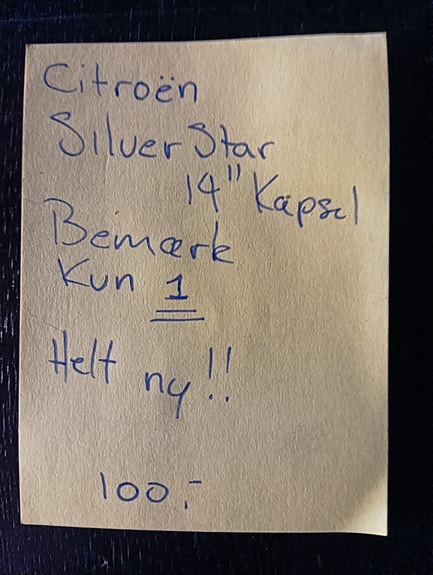 Citroën
SilverStar
14" Kapsel
Bemærk
Kun 1
Helt ny!!
100,-